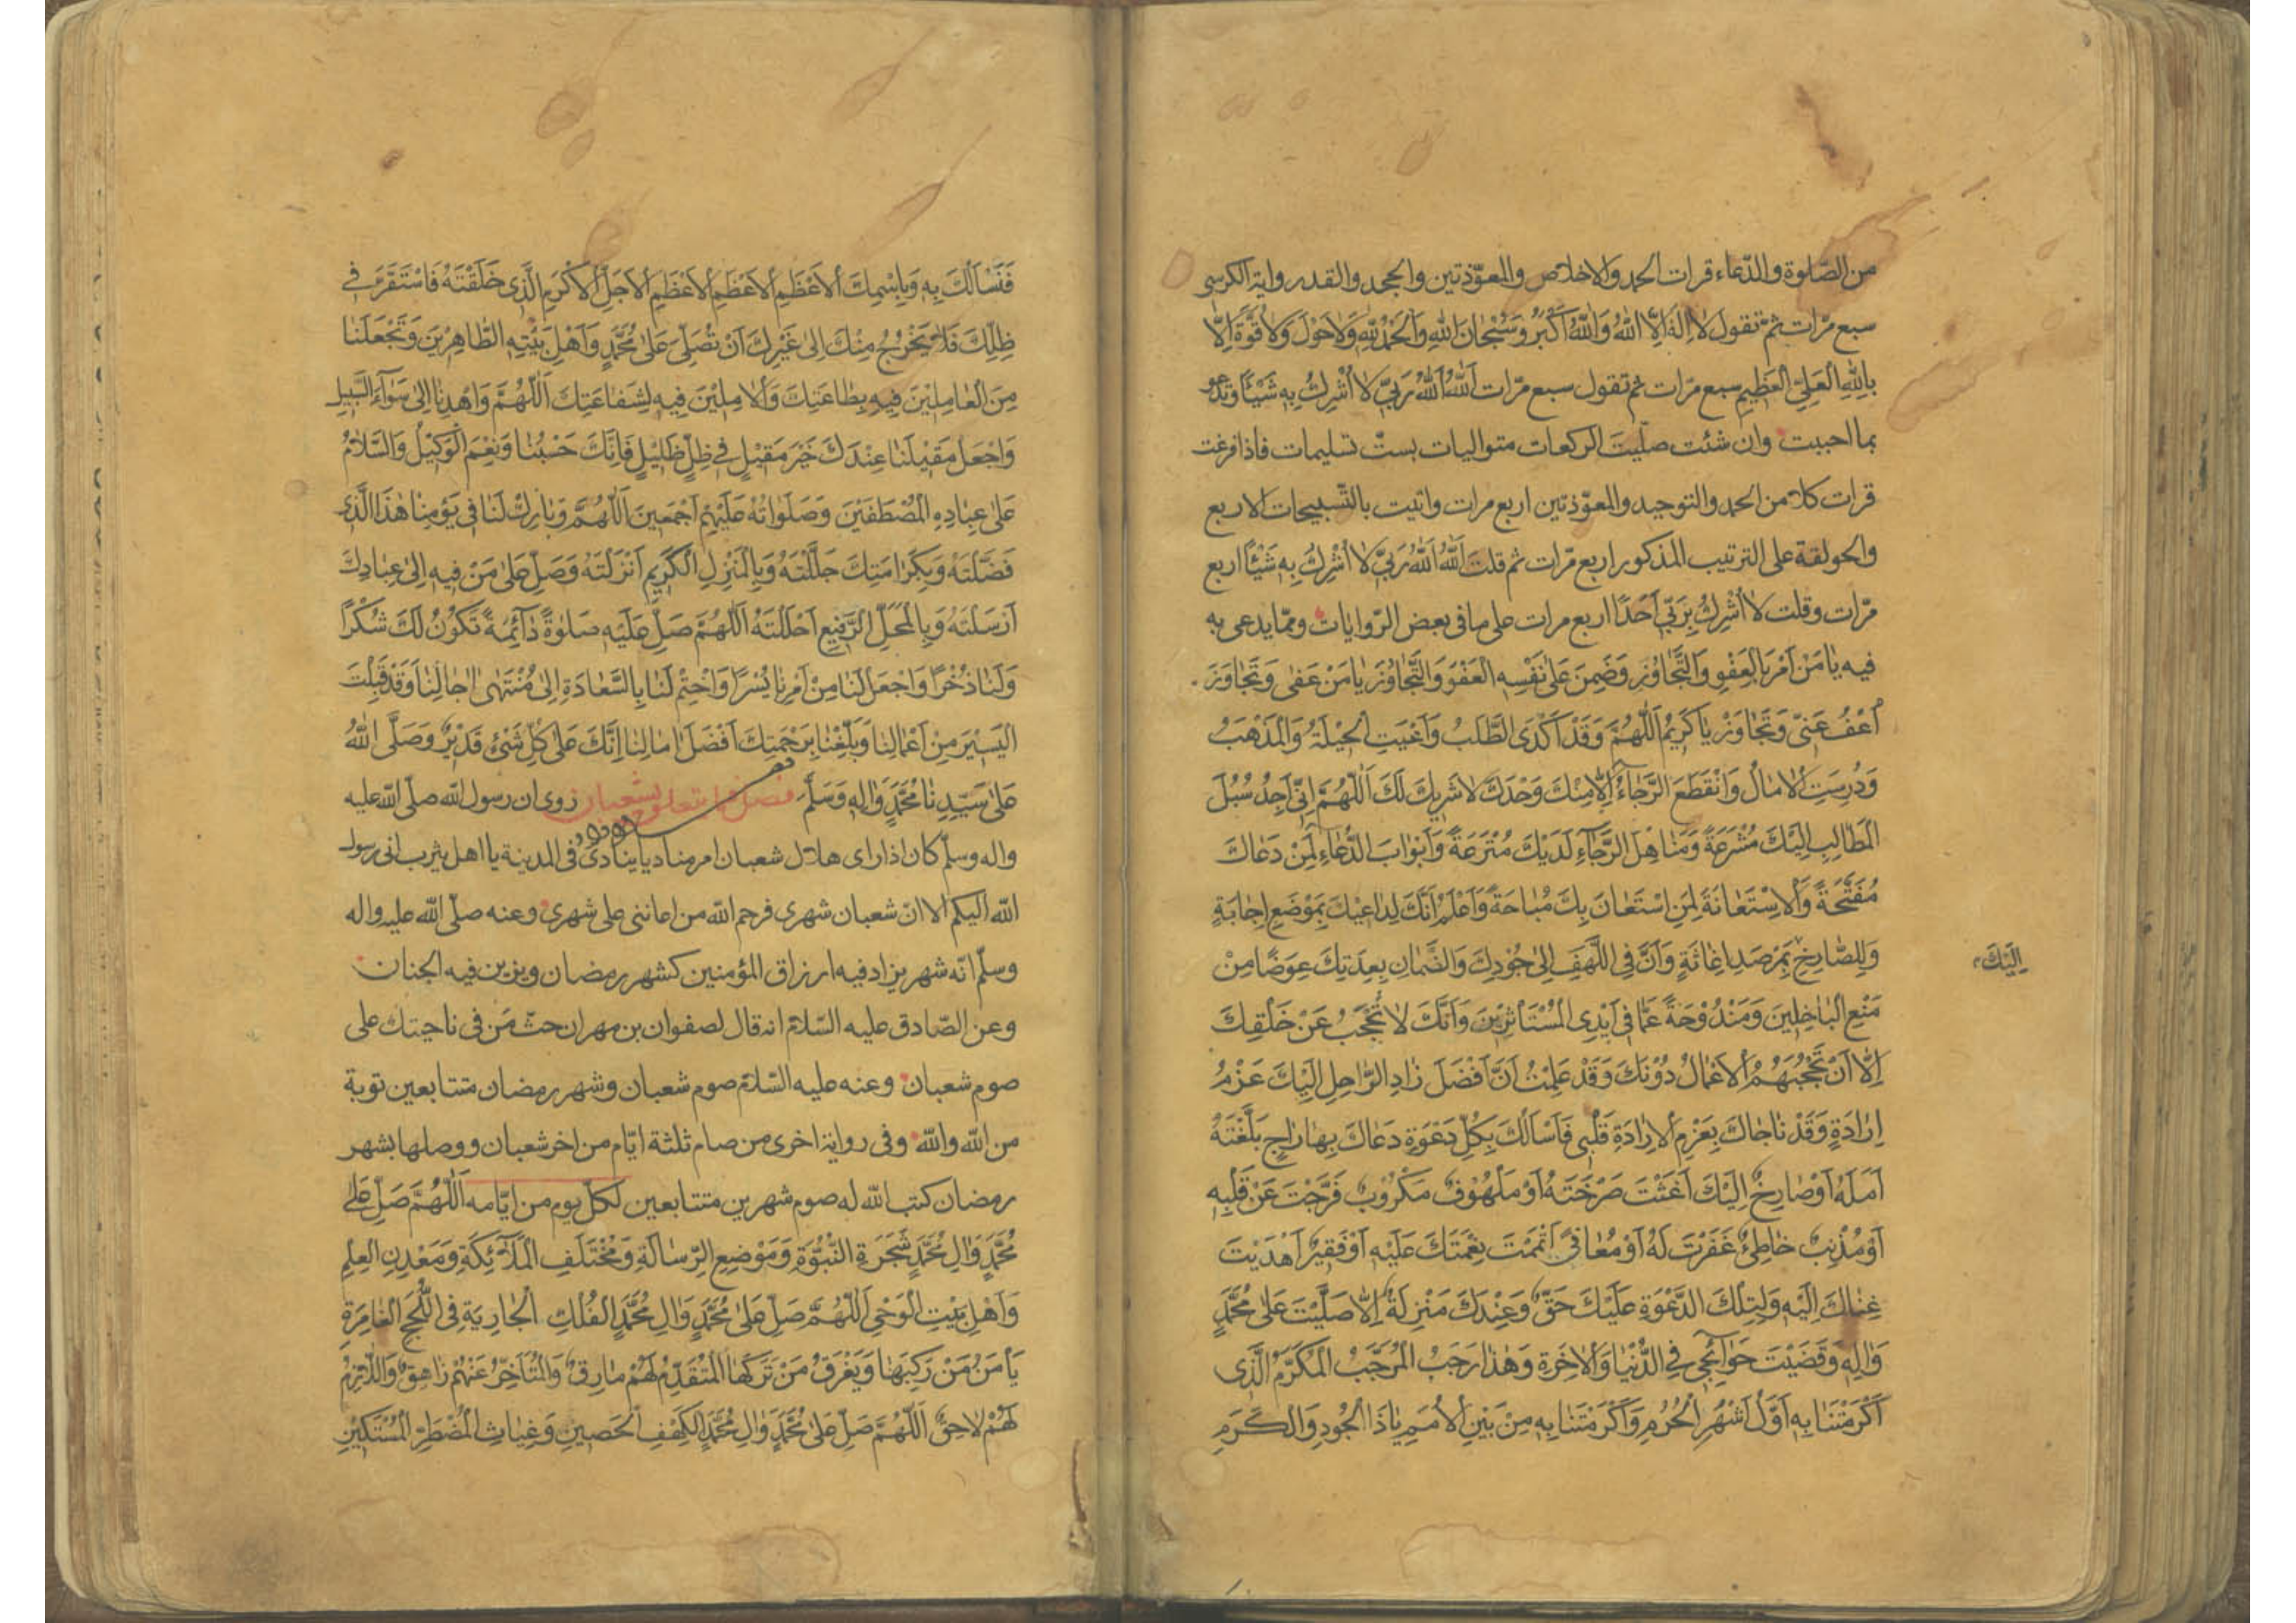 من الصّلوة والدّعاء قرات الحمد والاخلاص والمعوّذتين والجحد والقدر واية الكرسى
سبع مرّات ثمّ تقول لَا اِلٰهَ اِلَّا اللّٰهُ وَاللّٰهُ اَكْبَرُ وَسُبْحَانَ اللّٰهِ وَالْحَمْدُ لِلّٰهِ وَلَا حَوْلَ وَلَا قُوَّةَ اِلَّا
بِاللّٰهِ الْعَلِيِّ الْعَظِيمِ سبع مرّات ثم تقول سبع مرّات اَللّٰهُ اَللّٰهُ رَبّي لَا اُشْرِكُ بِهِ شَيْئًا وَتدعو
بما احببت وان شئت صلّيت الركعات متواليات بستّ تسليمات فاذا فرغت
قرات كلا من الحمد والتوحيد والمعوّذتين اربع مرات واتيت بالتّسبيحات الاربع
والحولقة على الترتيب المذكور اربع مرّات ثم قلت اَللّٰهُ اَللّٰهُ رَبّي لَا اُشْرِكُ بِهِ شَيْئًا اربع
مرّات وقلت لَا اُشْرِكُ بِرَبّي اَحَدًا اربع مرات على ما فى بعض الرّوايات وممّا يدعى به
فيه يَا مَنْ اَمَرَ بِالْعَفْوِ وَالتَّجَاوُزِ وَضَمِنَ عَلٰى نَفْسِهِ الْعَفْوَ وَالتَّجَاوُزَ يَا مَنْ عَفٰى وَتَجَاوَزَ
اُعْفُ عَنّي وَتَجَاوَزْ يَا كَرِيمُ اَللّٰهُمَّ وَقَدْ اَكْدَى الطَّلَبُ وَاَعْيَتِ الْحِيْلَةُ وَالْمَذْهَبُ
وَدُرِسَتِ الْاٰمَالُ وَانْقَطَعَ الرَّجَاءُ اِلَّا مِنْكَ وَحْدَكَ لَا شَرِيكَ لَكَ اَللّٰهُمَّ اِنّي اَجِدُ سُبُلَ
الْمَطَالِبِ اِلَيْكَ مُشْرَعَةً وَمَنَاهِلَ الرَّجَآءِ لَدَيْكَ مُتْرَعَةً وَاَبْوَابَ الدُّعَاءِ لِمَنْ دَعَاكَ
مُفَتَّحَةً وَالْاِسْتِعَانَةَ لِمَنِ اسْتَعَانَ بِكَ مُبَاحَةً وَاَعْلَمُ اَنَّكَ لِدَاعِيْكَ بِمَوْضِعِ اِجَابَةٍ
وَلِلصَّارِخِ بِمَرْصَدِ اِغَاثَةٍ وَاَنَّ فِي اللَّهَفِ اِلٰى جُوْدِكَ وَالضَّمَانِ بِعِدَتِكَ عِوَضًا مِنْ
اِلَيْكَ
مَنْعِ الْبَاخِلِينَ وَمَنْدُوْحَةً عَمَّا فِي اَيْدِى الْمُسْتَأْثِرِينَ وَاَنَّكَ لَا تُحْجَبُ عَنْ خَلْقِكَ
اِلَّا اَنْ تَحْجُبَهُمُ الْاَعْمَالُ دُوْنَكَ وَقَدْ عَلِمْتُ اَنَّ اَفْضَلَ زَادِ الرَّاحِلِ اِلَيْكَ عَزْمُ
اِرَادَةٍ وَقَدْ نَاجَاكَ بِعَزْمِ الْاِرَادَةِ قَلْبِي فَاَسْاَلُكَ بِكُلِّ دَعْوَةٍ دَعَاكَ بِهَا رَاجٍ بَلَّغْتَهُ
اَمَلَهُ اَوْ صَارِخٌ اِلَيْكَ اَغَثْتَ صَرْخَتَهُ اَوْ مَلْهُوْفٌ مَكْرُوْبٌ فَرَّجْتَ عَنْ قَلْبِهِ
اَوْ مُذْنِبٌ خَاطِئٌ غَفَرْتَ لَهُ اَوْ مُعَافًى اَتْمَمْتَ نِعْمَتَكَ عَلَيْهِ اَوْ فَقِيْرٌ اَهْدَيْتَ
غِنَاكَ اِلَيْهِ وَلِتِلْكَ الدَّعْوَةِ عَلَيْكَ حَقٌّ وَعِنْدَكَ مَنْزِلَةٌ اِلَّا صَلَّيْتَ عَلٰى مُحَمَّدٍ
وَاٰلِهِ وَقَضَيْتَ حَوَآئِجِي فِي الدُّنْيَا وَالْاٰخِرَةِ وَهٰذَا رَجَبُ الْمُرَجَّبُ الْمُكَرَّمُ الَّذِى
اَكْرَمْتَنَا بِهِ اَوَّلُ اَشْهُرِ الْحُرُمِ وَاَكْرَمْتَنَا بِهِ مِنْ بَيْنِ الْاُمَمِ يَا ذَا الْجُودِ وَالْكَرَمِ
فَنَسْاَلُكَ بِهِ وَبِاسْمِكَ الْاَعْظَمِ الْاَعْظَمِ الْاَعْظَمِ الْاَجَلِّ الْاَكْرَمِ الَّذِى خَلَقْتَهُ فَاسْتَقَرَّ فِي
ظِلِّكَ فَلَا يَخْرُجُ مِنْكَ اِلٰى غَيْرِكَ اَنْ تُصَلِّيَ عَلٰى مُحَمَّدٍ وَاَهْلِ بَيْتِهِ الطَّاهِرِينَ وَتَجْعَلَنَا
مِنَ الْعَامِلِيْنَ فِيهِ بِطَاعَتِكَ وَالْاٰمِلِيْنَ فِيهِ لِشَفَاعَتِكَ اَللّٰهُمَّ وَاهْدِنَا اِلٰى سَوَآءِ السَّبِيلِ
وَاجْعَلْ مَقِيْلَنَا عِنْدَكَ خَيْرَ مَقِيْلٍ فِي ظِلٍّ ظَلِيْلٍ فَاِنَّكَ حَسْبُنَا وَنِعْمَ الْوَكِيْلُ وَالسَّلَامُ
عَلٰى عِبَادِهِ الْمُصْطَفَيْنَ وَصَلَوَاتُهُ عَلَيْهِمْ اَجْمَعِينَ اَللّٰهُمَّ وَبَارِكْ لَنَا فِي يَوْمِنَا هٰذَا الَّذِى
فَضَّلْتَهُ وَبِكَرَامَتِكَ جَلَّلْتَهُ وَبِالْمَنْزِلِ الْكَرِيمِ اَنْزَلْتَهُ وَصَلِّ عَلٰى مَنْ فِيهِ اِلٰى عِبَادِكَ
اَرْسَلْتَهُ وَبِالْمَحَلِّ الرَّفِيعِ اَحْلَلْتَهُ اَللّٰهُمَّ صَلِّ عَلَيْهِ صَلٰوةً دَآئِمَةً تَكُوْنُ لَكَ شُكْرًا
وَلَنَا ذُخْرًا وَاجْعَلْ لَنَا مِنْ اَمْرِنَا يُسْرًا وَاخْتِمْ لَنَا بِالسَّعَادَةِ اِلٰى مُنْتَهٰى اٰجَالِنَا وَقَدْ قَبِلْتَ
الْيَسِيْرَ مِنْ اَعْمَالِنَا وَبَلِّغْنَا بِرَحْمَتِكَ اَفْضَلَ اٰمَالِنَا اِنَّكَ عَلٰى كُلِّ شَيْئٍ قَدِيْرٌ وَصَلَّى اللّٰهُ
عَلٰى سَيِّدِنَا مُحَمَّدٍ وَاٰلِهِ وَسَلَّمَ فصل فيما يتعلق بشعبان روى ان رسول اللّه صلّى اللّه عليه
واله وسلّم كان اذا راى هلال شعبان امر مناديا ينادى فى المدينة يا اهل يثرب انى رسول
اللّه اليكم الا انّ شعبان شهرى فرحم اللّه من اعاننى على شهرى وعنه صلّى اللّه عليه واله
وسلّم انّه شهر يزاد فيه ارزاق المؤمنين كشهر رمضان ويزين فيه الجنان
وعن الصّادق عليه السّلام انه قال لصفوان بن مهران حثّ مَن فى ناحيتك على
صوم شعبان وعنه عليه السّلام صوم شعبان وشهر رمضان متتابعين توبة
من اللّه واللّه وفى رواية اخرى من صام ثلثة ايّام من اخر شعبان ووصلها بشهر
رمضان كتب اللّه له صوم شهرين متتابعين لكلّ يوم من ايّامه اَللّٰهُمَّ صَلِّ عَلٰى
مُحَمَّدٍ وَاٰلِ مُحَمَّدٍ شَجَرَةِ النُّبُوَّةِ وَمَوْضِعِ الرِّسَالَةِ وَمُخْتَلَفِ الْمَلَآئِكَةِ وَمَعْدِنِ الْعِلْمِ
وَاَهْلِ بَيْتِ الْوَحْيِ اَللّٰهُمَّ صَلِّ عَلٰى مُحَمَّدٍ وَاٰلِ مُحَمَّدٍ الْفُلْكِ الْجَارِيَةِ فِي اللُّجَجِ الْغَامِرَةِ
يَأْمَنُ مَنْ رَكِبَهَا وَيَغْرَقُ مَنْ تَرَكَهَا الْمُتَقَدِّمُ لَهُمْ مَارِقٌ وَالْمُتَاَخِّرُ عَنْهُمْ زَاهِقٌ وَاللَّازِمُ
لَهُمْ لَاحِقٌ اَللّٰهُمَّ صَلِّ عَلٰى مُحَمَّدٍ وَاٰلِ مُحَمَّدٍ الْكَهْفِ الْحَصِينِ وَغِيَاثِ الْمُضْطَرِّ الْمُسْتَكِيْنِ